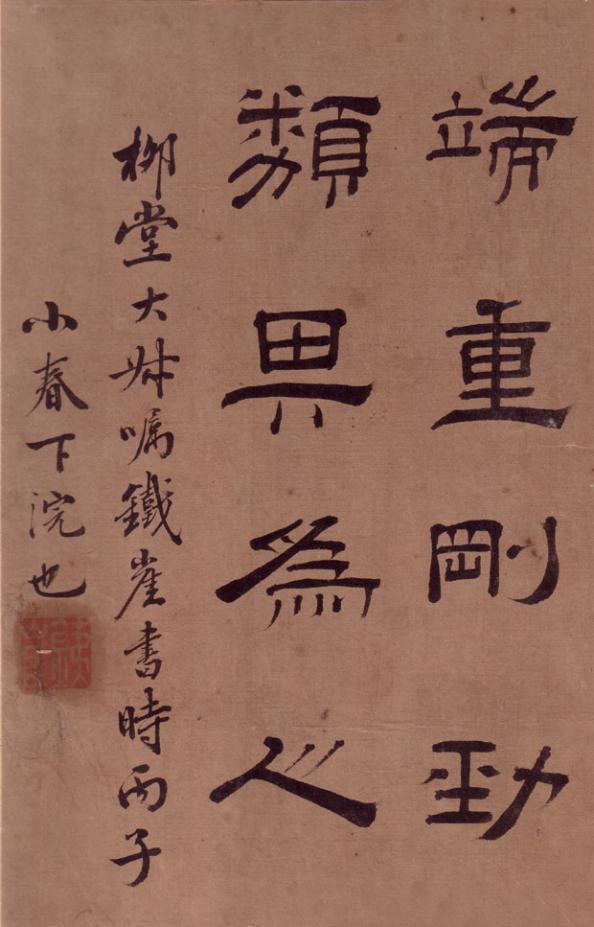 端重剛勁
類其爲人
柳堂大嘱鐵崖書時丙子
小春下浣也